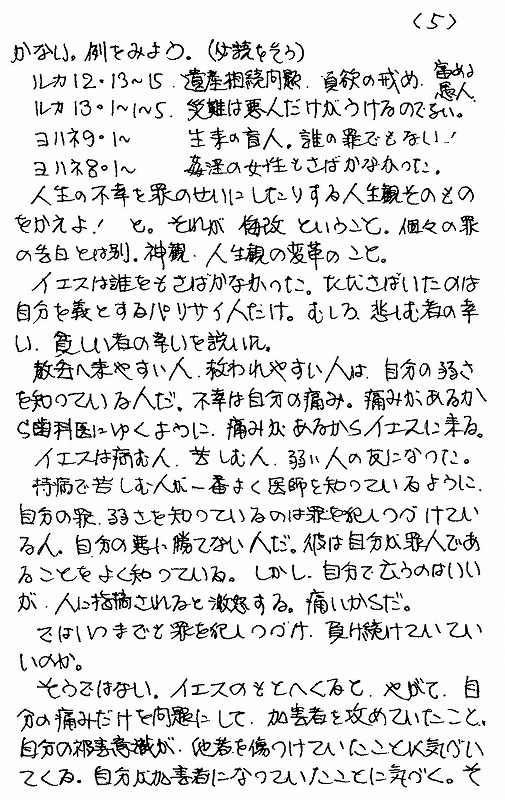 (5)
かない。例をみよう。(分読をそう)
ルカ12・13〜15. 遺産相続問題. 貪欲の戒め. 富める愚人.
ルカ13・1〜1〜5. 災難は悪人だけがうけるのでない。
ヨハネ9・1〜 生来の盲人. 誰の罪でもない!
ヨハネ8・1〜 姦淫の女性もさばかなかった.
人生の不幸を罪のせいにしたりする人生観そのもの
をかえよ! と。それが 悔改 ということ。個々の罪
の告白とは別. 神観. 人生観の変革のこと。
イエスは誰をもさばかなかった。たださばいたのは
自分を義とするパリサイ人だけ。むしろ 悲しむ者の幸
い. 貧しい者の幸いを説いた。
教会へ来やすい人. 救われやすい人は. 自分の弱さ
を知っている人だ. 不幸は自分の痛み。痛みがあるか
ら歯科医にゆくように. 痛みがあるからイエスに来る。
イエスは病む人. 苦しむ人. 弱い人の友になった。
持病で苦しむ人が一番よく医師を知っているように.
自分の罪. 弱さを知っているのは罪を犯しつづけてい
る人. 自分の悪に勝てない人だ。彼は自分が罪人であ
ることをよく知っている。しかし. 自分で云うのはいい
が. 人に指摘されると激怒する。痛いからだ。
ではいつまでも罪を犯しつづけ. 負け続けていてい
いのか。
そうではない。イエスのもとへくると. やがて. 自
分の痛みだけを問題にして. 加害者を攻めていたこと.
自分の被害意識が. 他者を傷つけていたことに気づい
てくる. 自分が加害者になっていたことに気づく。そ